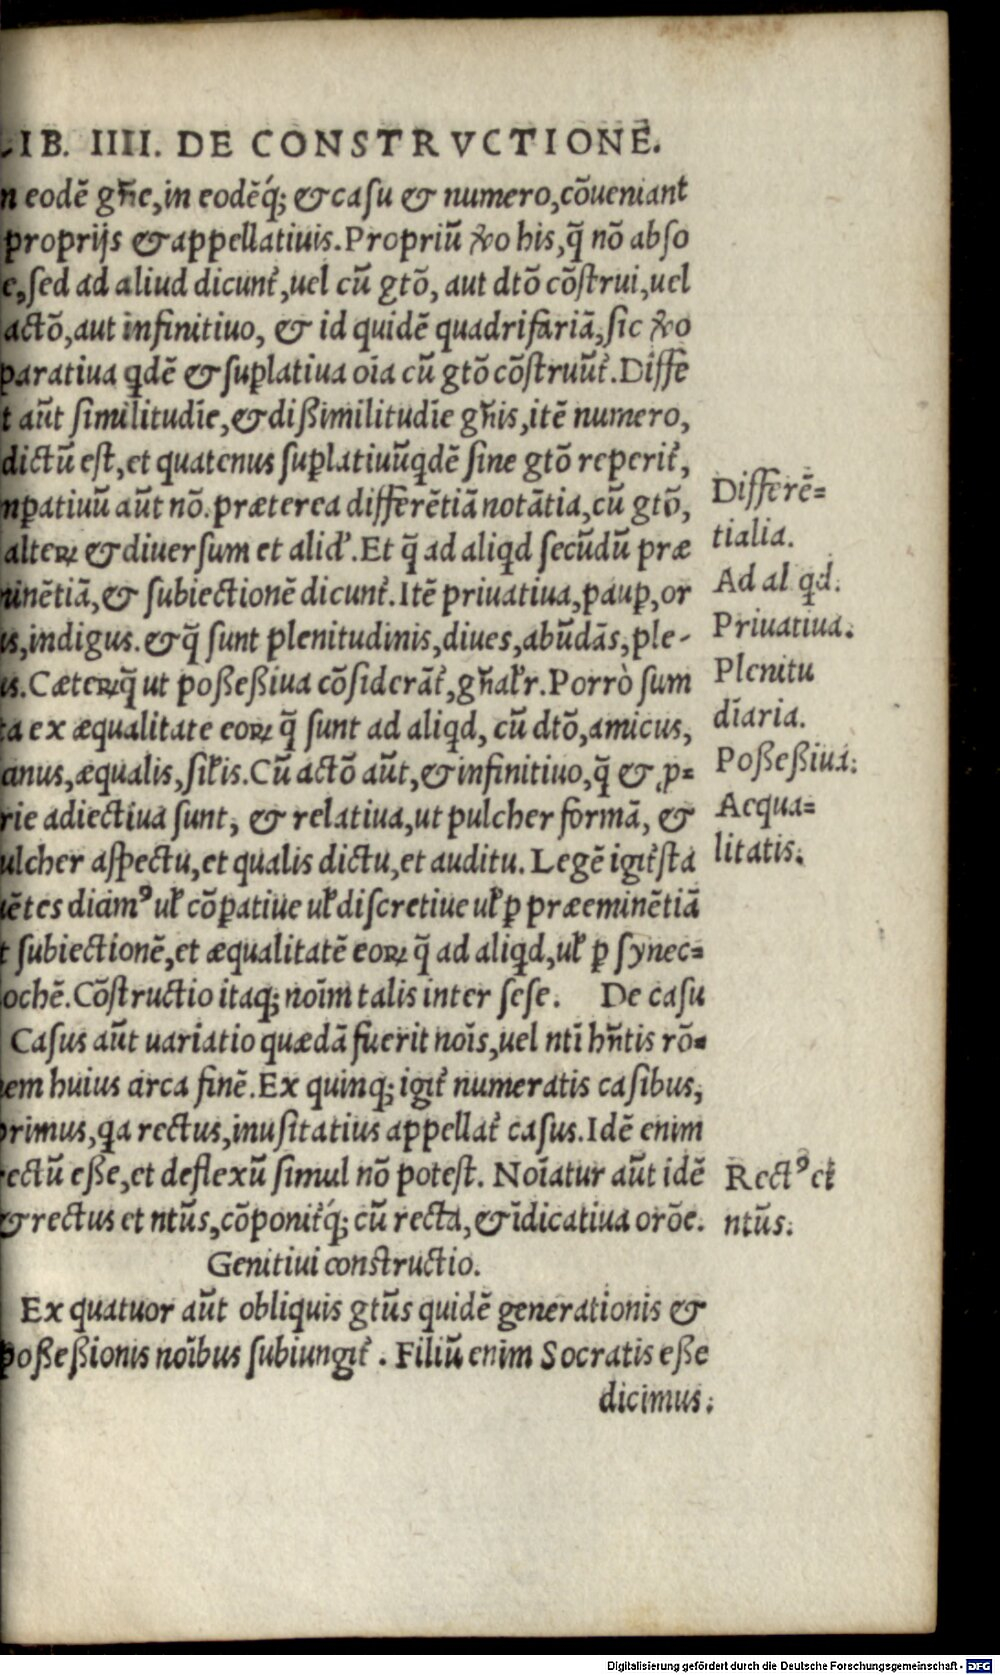 IB. IIII. DE CONSTRVCTIONE.
n eodē gn̄e, in eodēq́; & casu & numero, cōueniant
proprijs & appellatiuis. Propriū ꝟo his, q̄ nō abso
e, sed ad aliud dicunt᷑, uel cū gtō, aut dtō cōstrui, uel
actō, aut infinitiuo, & id quidē quadrifariā, sic ꝟo
paratiua qdē & suꝑlatiua oīa cū gtō cōstruūt᷑. Diffe
t aūt similitudīe, & dißimilitudīe gn̄is, itē numero,
dictū est, et quatenus suꝑlatiuū qdē sine gtō reperit᷑,
nꝑatiuū aūt nō. præterea differētiā notātia, cū gtō,
alteꝝ & diuersum et alid'. Et q̄ ad aliqd secūdū præ
inētiā, & subiectionē dicunt᷑. Itē priuatiua, pauꝑ, or
is, indigus. & q̄ sunt plenitudinis, diues, abūdās, ple-
is. Cæteꝝ q̄ ut poßeßiua cōsiderāt᷑, gn̄aƚr. Porrò sum
ta ex æqualitate eoꝝ q̄ sunt ad aliqd, cū dtō, amicus,
anus, æqualis, siƚis. Cū actō aūt, & infinitiuo, q̄ & ꝓ=
rie adiectiua sunt, & relatiua, ut pulcher formā, &
ulcher aspectu, et qualis dictu, et auditu. Legē igit᷑ sta
uētes dicimꝰ uƚ cōꝑatiue uƚ discretiue uƚ ꝑ præeminētiā
t subiectionē, et æqualitatē eoꝝ q̄ ad aliqd, uƚ ꝑ synec=
ochē. Cōstructio itaq; noīm talis inter sese. De casu
Casus aūt uariatio quædā fuerit noīs, uel ntī hn̄tis rō=
em huius arca finē. Ex quinq; igit᷑ numeratis casibus,
primus, qa rectus, inusitatius appellat᷑ casus. Idē enim
rectū eße, et deflexū simul nō potest. Noīatur aūt idē
& rectus et ntūs, cōponit᷑q́; cū recta, & īdicatiua orōe.
Genitiui constructio.
Ex quatuor aūt obliquis gtūs quidē generationis &
poßeßionis noībus subiungit᷑. Filiū enim Socratis eße
dicimus.
Differē=
tialia.
Ad al qd.
Priuatiua.
Plenitu
dīaria.
Poßeßiua.
Aequa=
litatis.
Rectꝰ et
ntūs.
Digitalisierung gefördert durch die Deutsche Forschungsgemeinschaft - DFG